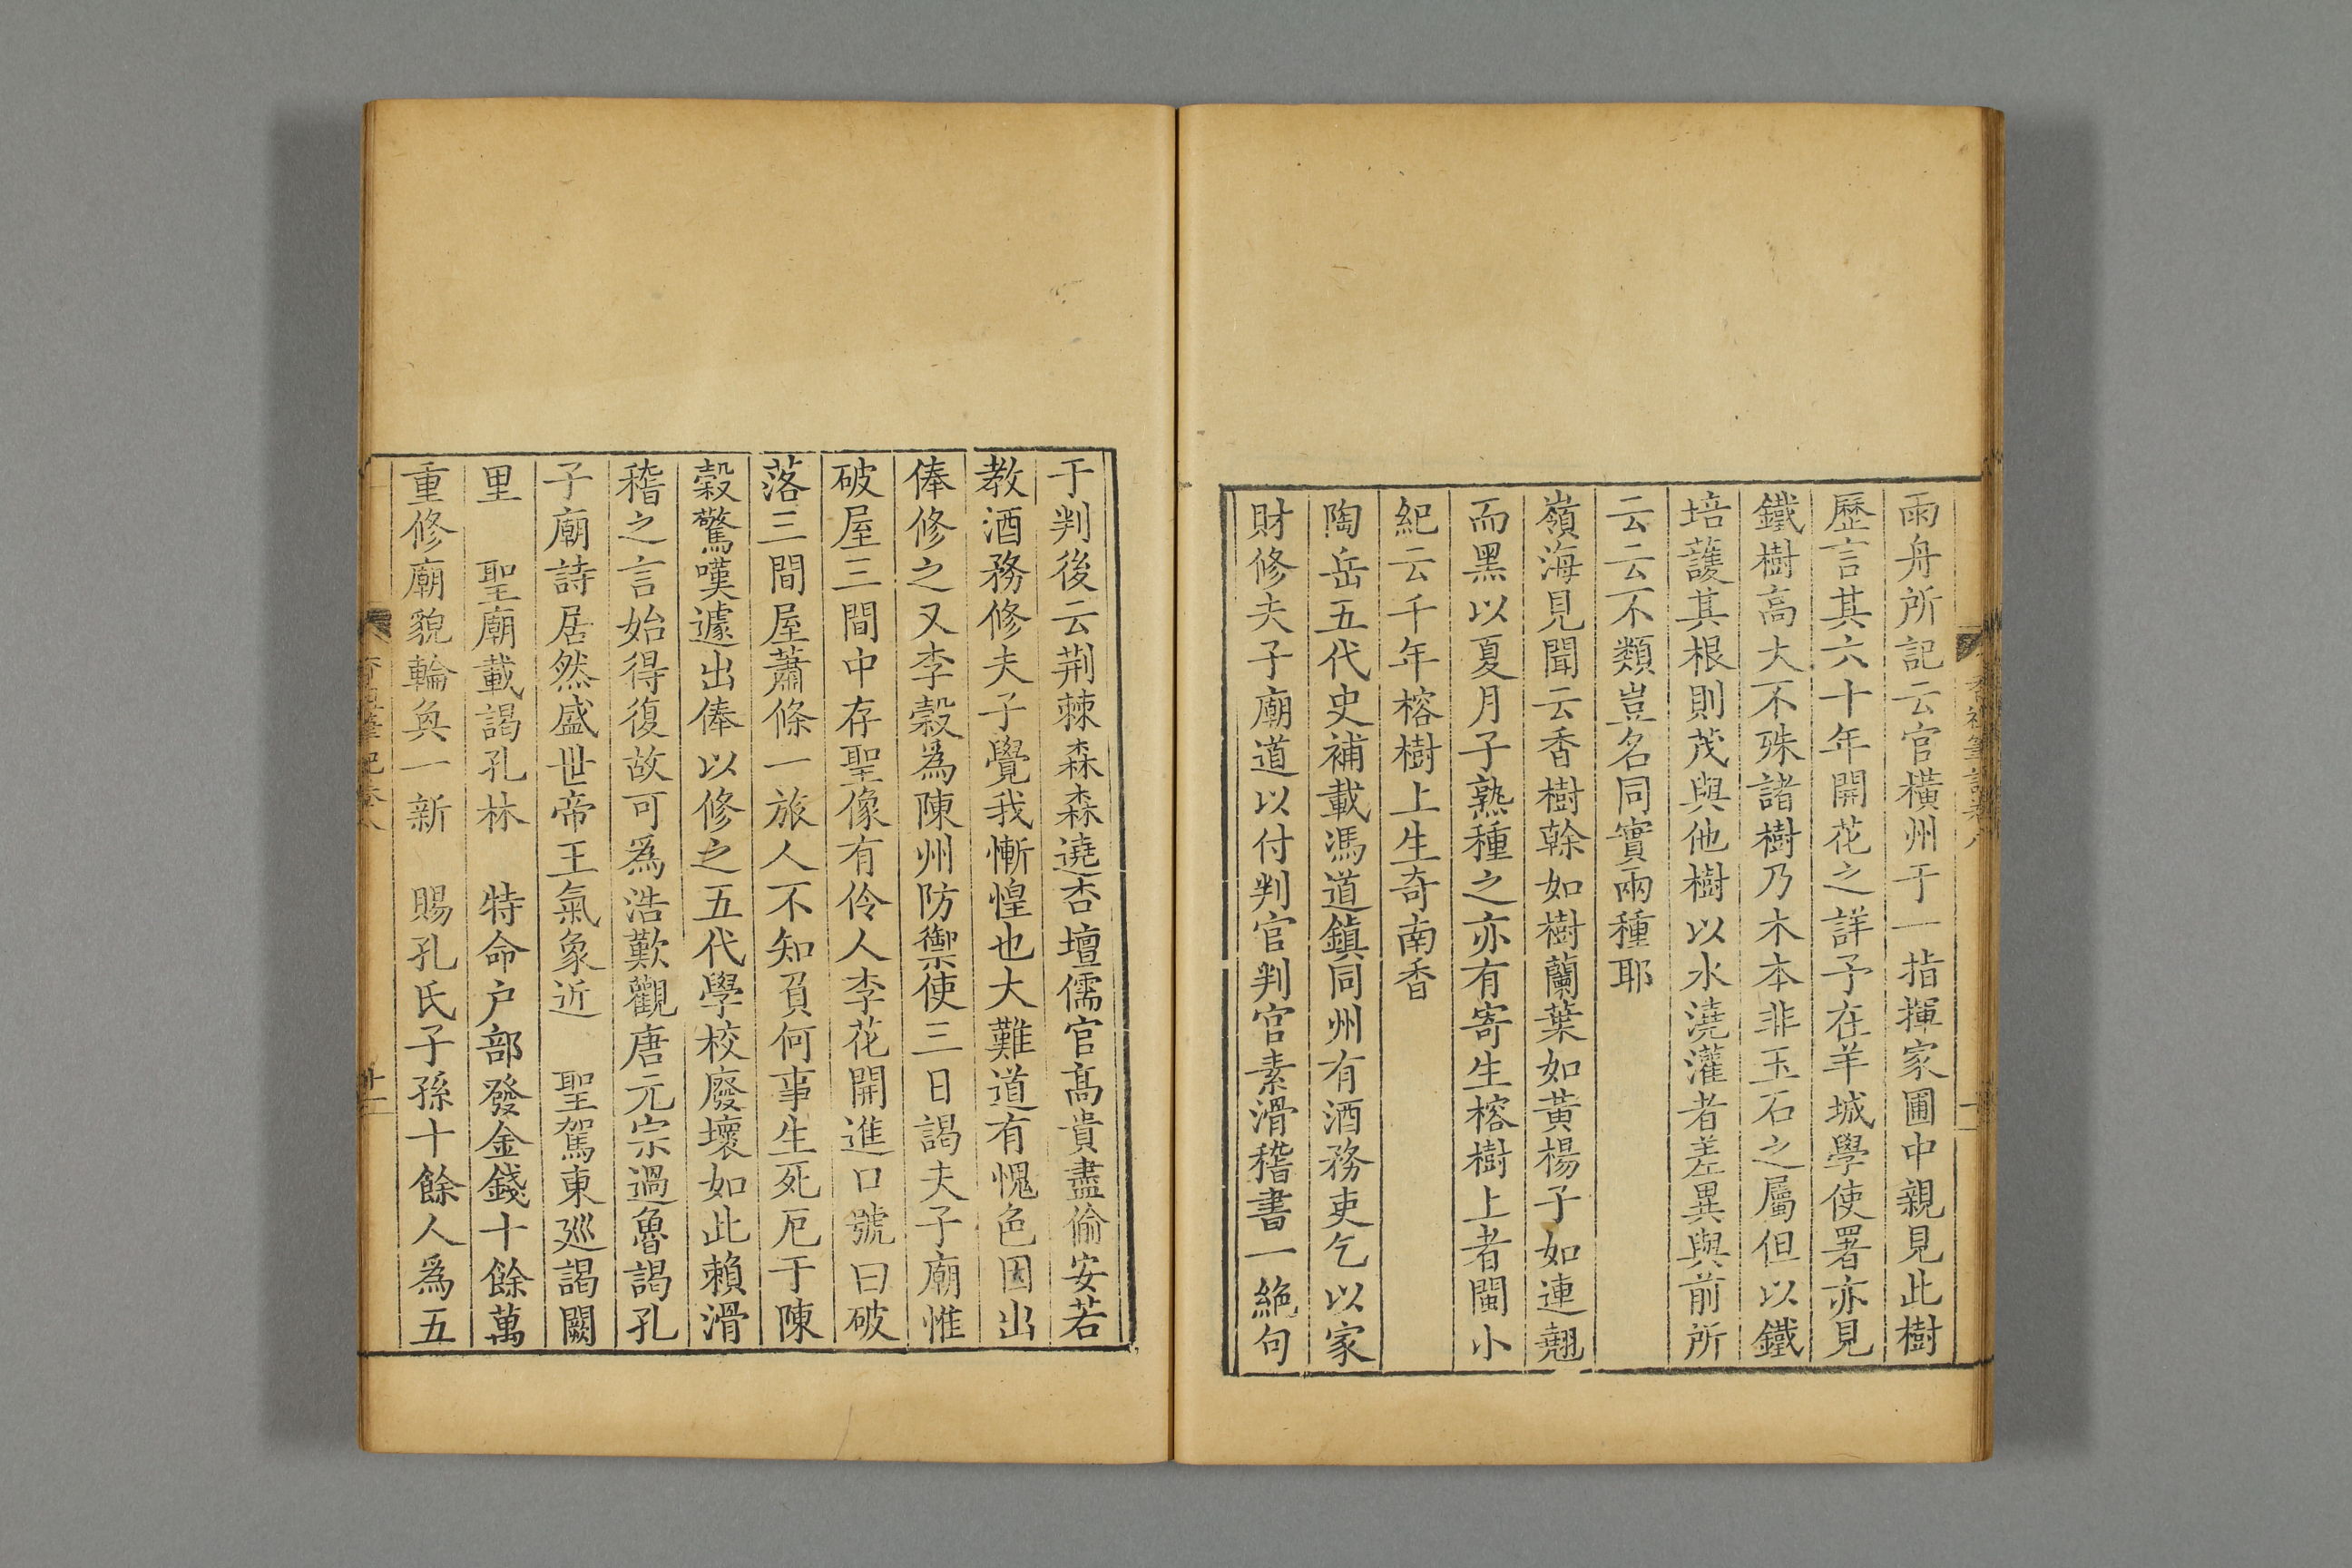 雨舟所記云官橫州于一指揮家圃中親見此樹
歷言其六十年開花之詳予在羊城學使署亦見
鐵樹高大不殊諸樹乃木本非玉石之屬但以鐵
培護其根則茂與他樹以水澆灌者差異與前所
云云不類豈名同實兩種耶
嶺海見聞云香樹榦如樹蘭葉如黃楊子如連翹
而黑以夏月子熟種之亦有寄生榕樹上者閩小
紀云千年榕樹上生奇南香
陶岳五代史補載馮道鎮同州有酒務吏乞以家
財修夫子廟道以付判官判官素滑稽書一絕句
于判後云荆棘森森遶杏壇儒官髙貴盡偷安若
教酒務修夫子覺我慚惶也大難道有愧色因出
俸修之又李榖爲陳州防禦使三日謁夫子廟惟
破屋三間中存聖像有伶人李花開進口號曰破
落三間屋蕭條一旅人不知負何事生死厄于陳
榖驚嘆遽出俸以修之五代學校廢壞如此賴滑
稽之言始得復故可爲浩歎觀唐元宗過魯謁孔
子廟詩居然盛世帝王氣象近 聖駕東廵謁闕
里 聖廟載謁孔林 特命户部發金錢十餘萬
重修廟貌輪奐一新 賜孔氏子孫十餘人爲五